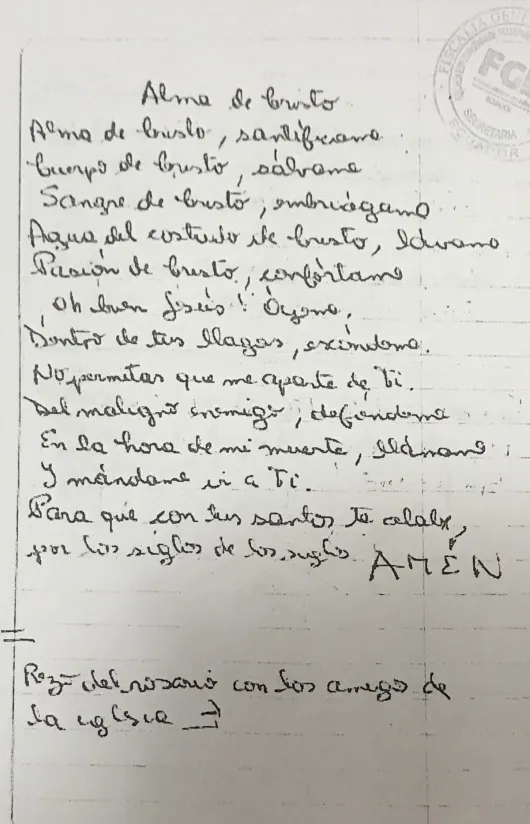 FISCALÍA GENE
FC
SECRETARIA
ECUADOR
Alma de Cristo
Alma de Cristo, santifícame
Cuerpo de Cristo, sálvame
Sangre de Cristo, embriágame
Agua del costado de Cristo, lávame
Pasión de Cristo, confórtame
¡Oh buen Jesús! Óyeme,
Dentro de tus llagas, escóndeme.
No permitas que me aparte de Ti.
Del maligno enemigo, defiéndeme
En la hora de mi muerte, llámame
Y mándame ir a Ti.
Para que con tus santos te alabe,
por los siglos de los siglos AMÉN
Rezo del rosario con los amigos de
la iglesia